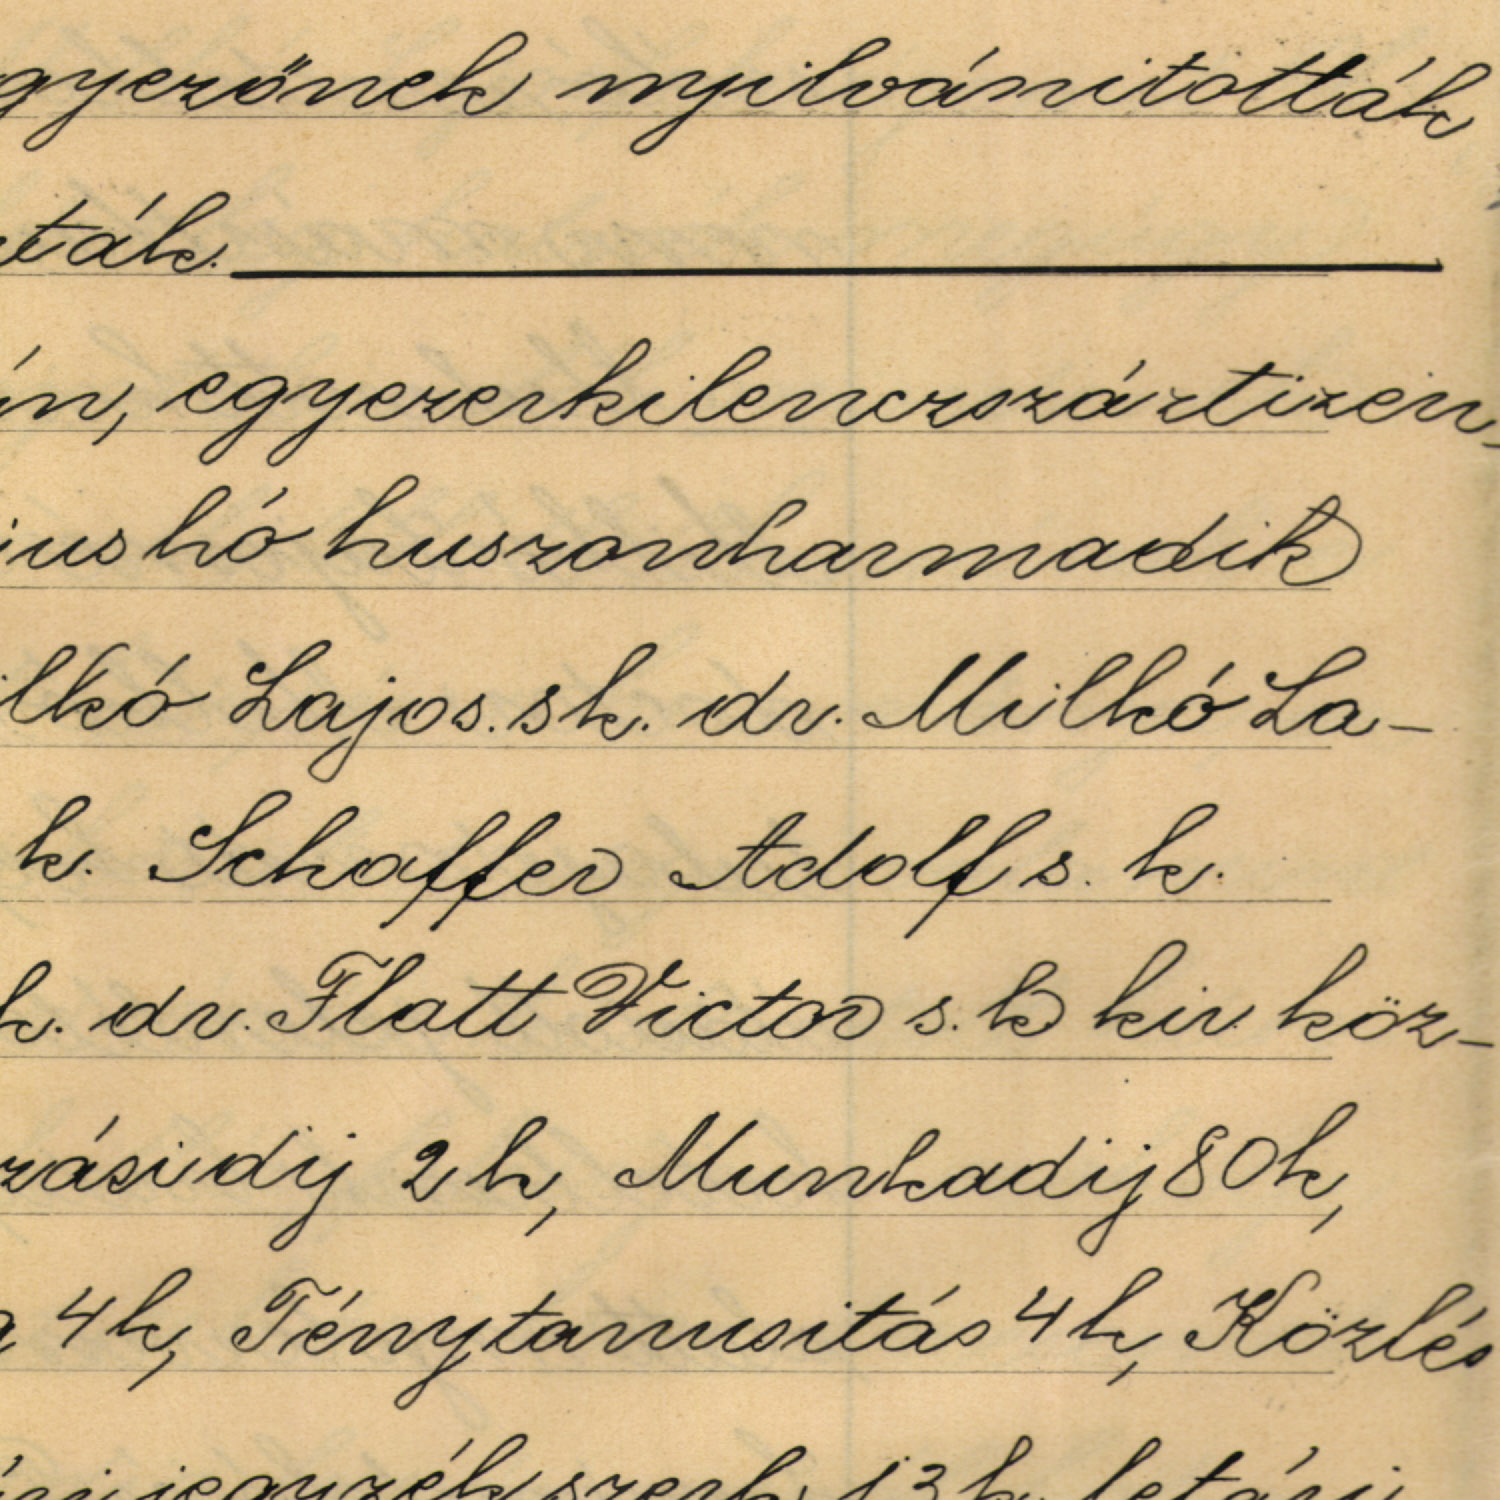 gyezőnek nyilvánitották
ták.
án, egyezerkilenczszáztizen,
ius hó huszonharmadik
ilkó Lajos. sk. dr. Milkó La-
k. Schaffer Adolf s. k.
k. dr. Flatt Victor s. k kir. köz-
zási dij 2 k, Munkadij 80 k,
4 k, Ténytanusitás 4 k, Közlés
jegyzék szerk. 13 k letári